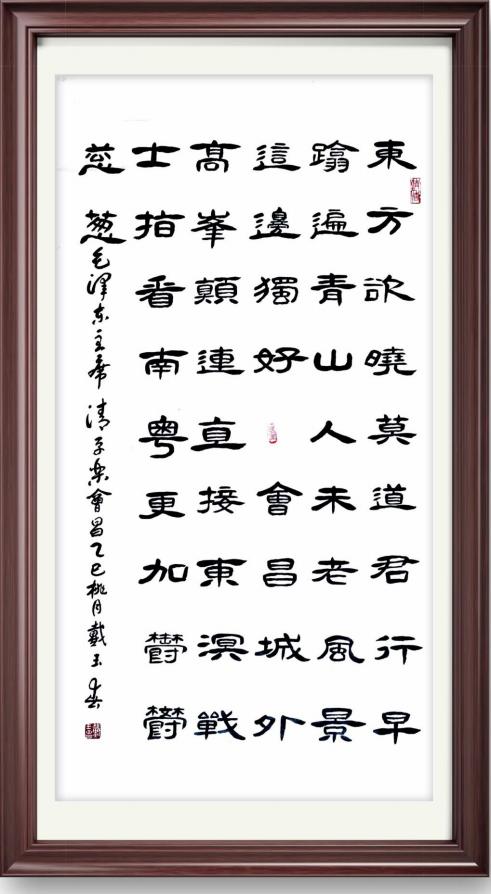 東方欲曉莫道君行早
踏遍青山人未老風景
這邊獨好 會昌城外
髙峯顛連直接東溟戰
士指看南粤更加欝欝
葱葱 毛澤东主席 清平樂會昌 乙巳桃月戴玉